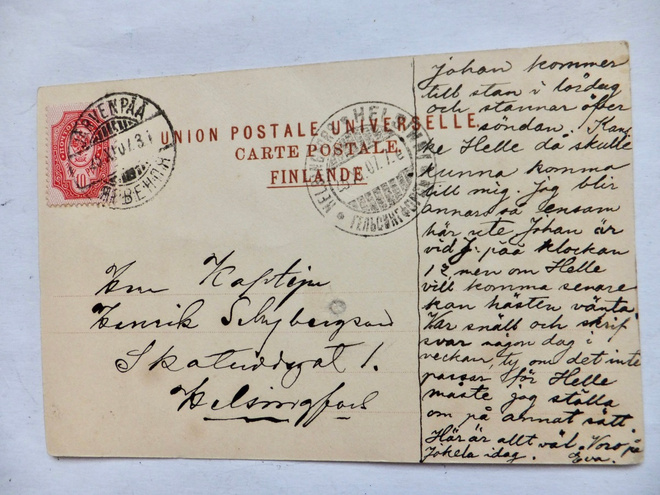 UNION POSTALE UNIVERSELLE
CARTE POSTALE
FINLANDE
JÄRVENPÄÄ
07.3
HELSINGFORS
07.7
ГЕЛЬСИНГФОРСЪ
10
Herr Kapten
Henrik
1.
Helsingfors
Johan kommer
till stan i lördag
och stannar öfver
söndan. Kan
ke Helle då skulle
kunna komma
till mig. Jag blir
annars så ensam
här ute. Johan är
vid J: pää klockan
12, men om Helle
vill komma senare
kan hästen vänta.
Var snäll och skrif
svar någon dag i
veckan, ty om det inte
passar för Helle
måste jag ställa
om på annat sätt.
Här är allt väl. Voro på
Jokela idag. Eva.